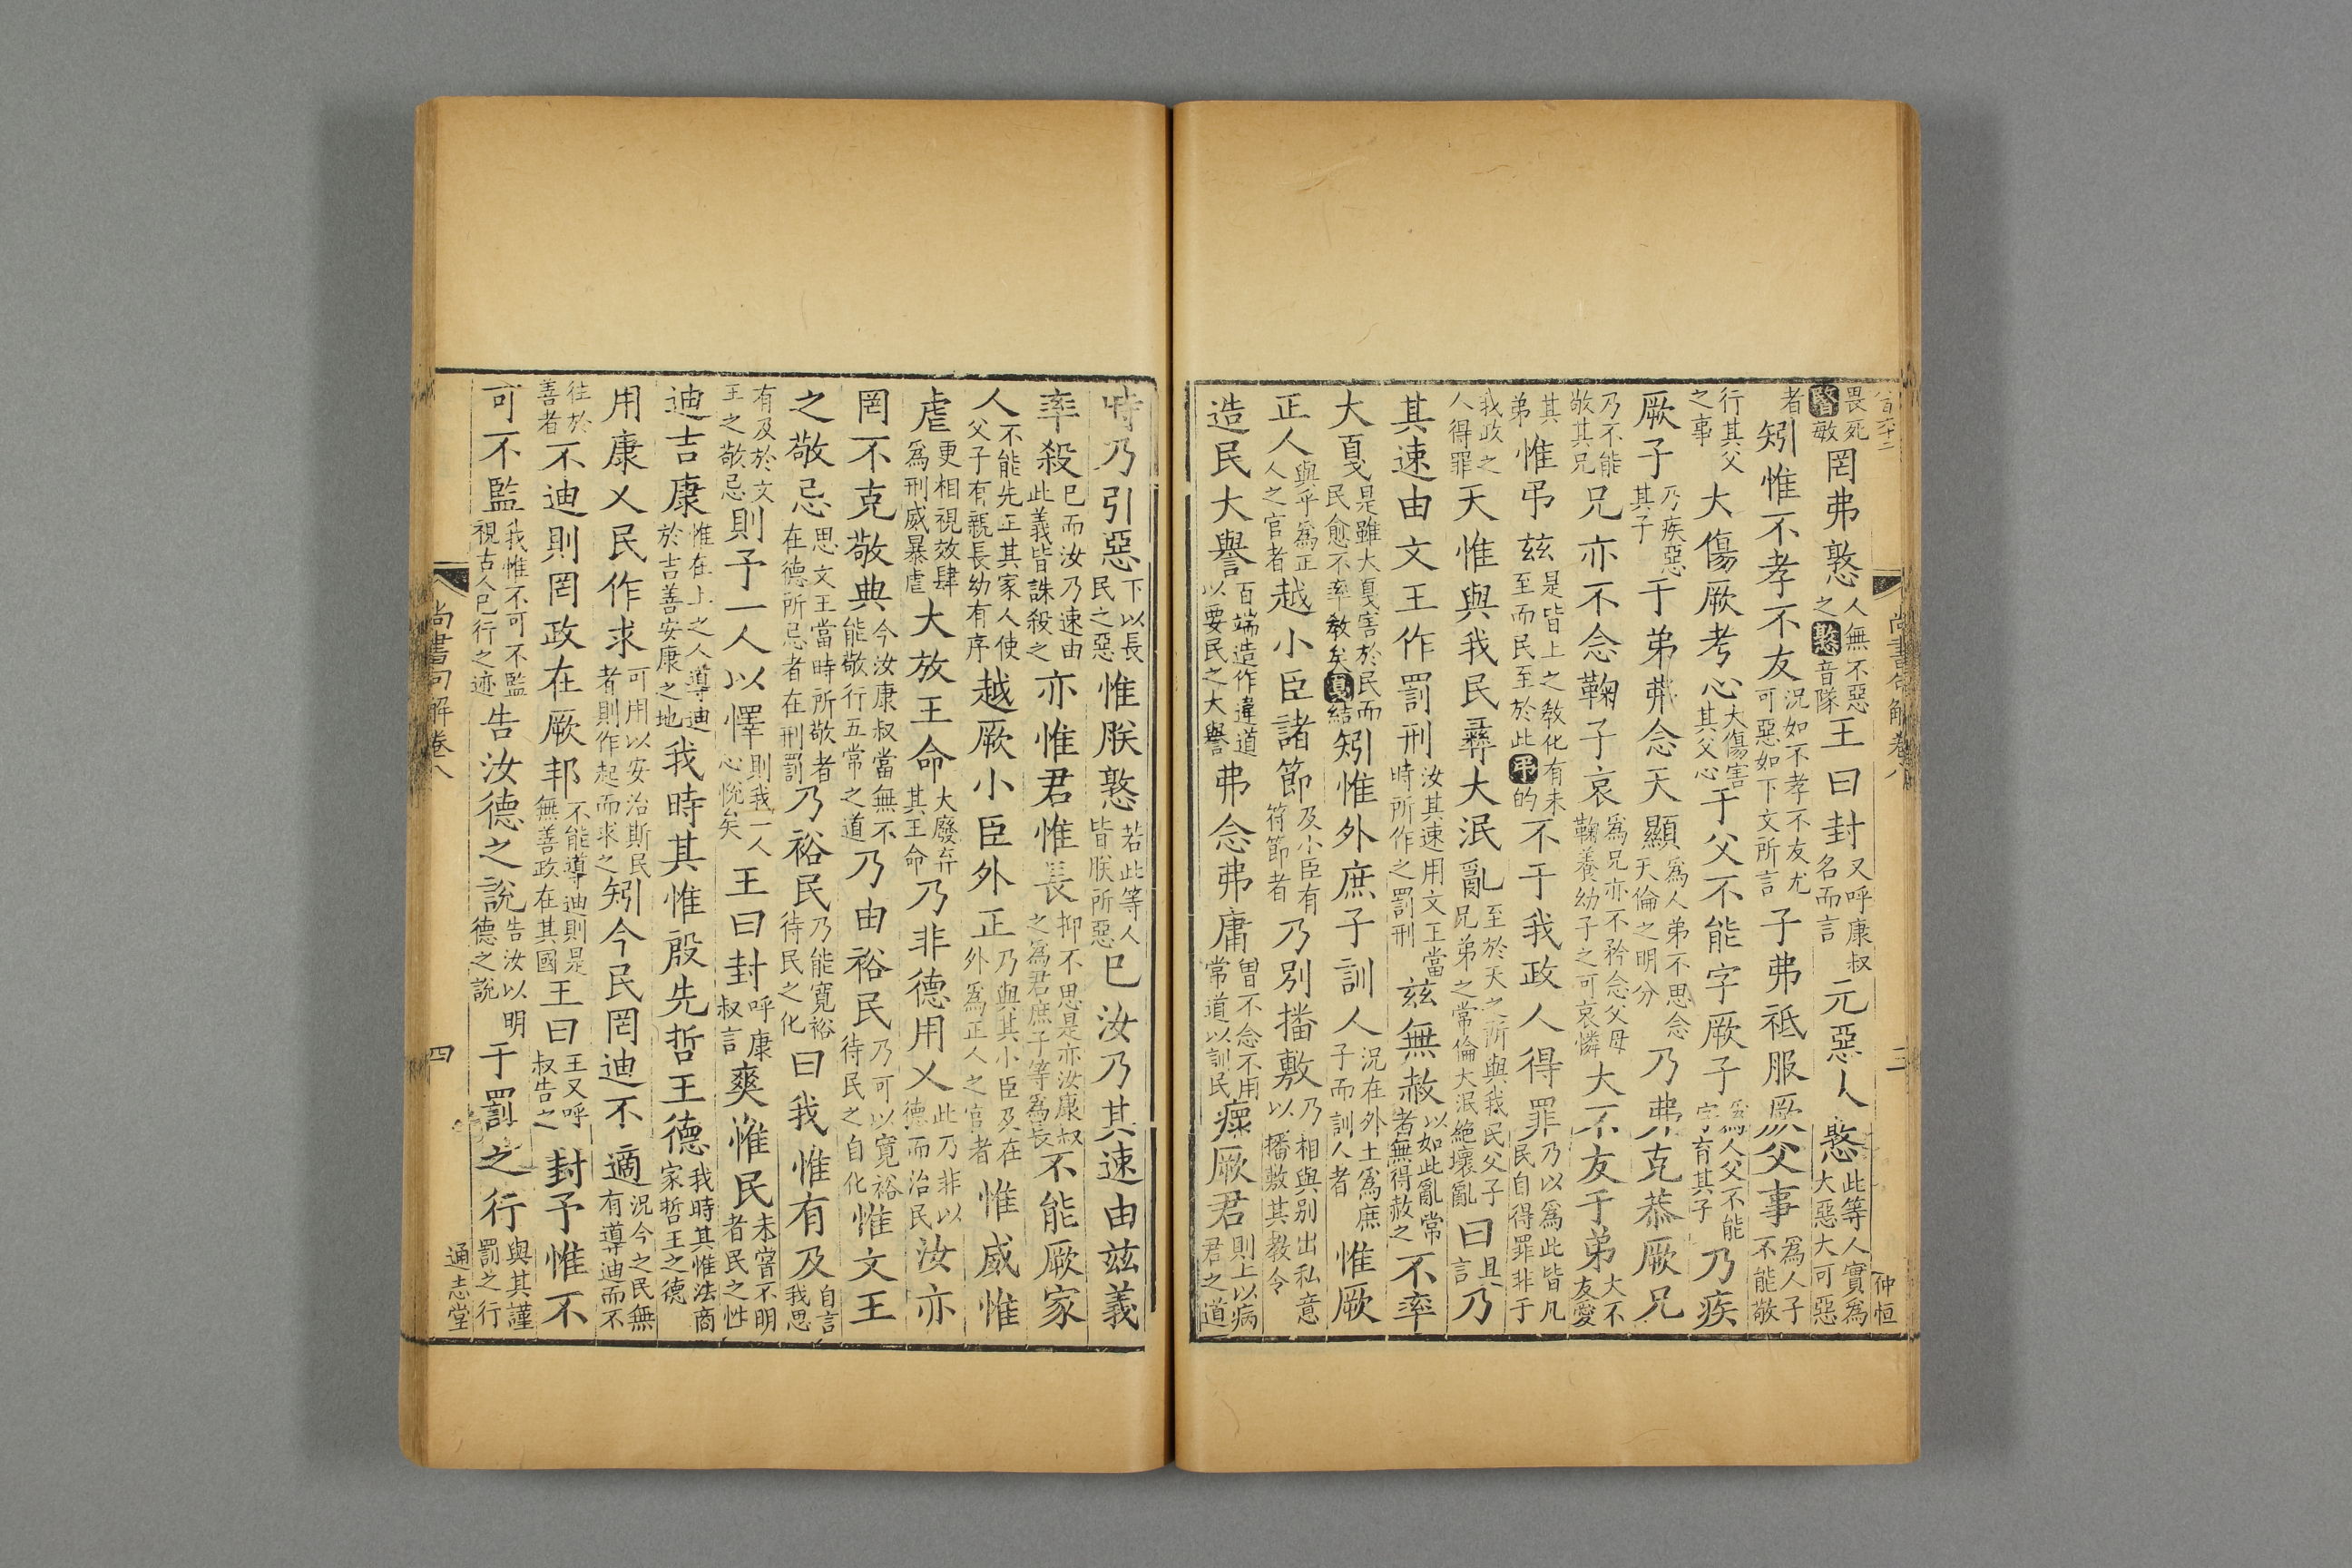 尚書句解卷八
三
仲恒
畏死暋敏罔弗憝人無不惡之憝音隊王曰封又呼康叔名而言元惡大憝此等人實為大惡大可惡
者矧惟不孝不友況如不孝不友尤可惡如下文所言子弗祗服厥父事為人子不能敬
行其父之事大傷厥考心大傷害其父心于父不能字厥子為人父不能字育其子乃疾
厥子乃疾惡其子于弟弗念天顯為人弟不思念天倫之明分乃弗克恭厥兄
乃不能敬其兄兄亦不念鞠子哀為兄亦不矜念父母鞠養幼子之可哀憐大不友于弟大不友愛
其弟惟弔茲是皆上之教化有未至而民至於此弔的不于我政人得罪乃以為此皆凡民自得罪非于
我政之人得罪天惟與我民彝大泯亂至於天之所與我民父子兄弟之常倫大泯絕壞亂曰且言乃
其速由文王作罰刑汝其速用文王當時所作之罰刑茲無赦以如此亂常者無得赦之不率
大戛是雖大戛害於民而民愈不率教矣戛結矧惟外庶子訓人況在外土為庶子而訓人者惟厥
正人與乎為正人之官者越小臣諸節及小臣有符節者乃別播敷乃相與別出私意以播敷其教令
造民大譽百端造作違道以要民之大譽弗念弗庸曾不念不用常道以訓民瘝厥君則上以病君之道
時乃引惡下以長民之惡惟朕憝若此等人皆朕所惡巳汝乃其速由茲義
率殺巳而汝乃速由此義皆誅殺之亦惟君惟長抑不思是亦汝康叔之為君庶子等為長不能厥家
人不能先正其家人使父子有親長幼有序越厥小臣外正乃與其小臣及在外為正人之官者惟威惟
虐更相視效肆為刑威暴虐大放王命大廢弃其王命乃非德用乂此乃非以德而治民汝亦
罔不克敬典今汝康叔當無不能敬行五常之道乃由裕民乃可以寬裕待民之自化惟文王
之敬忌思文王當時所敬者在德所忌者在刑罰乃裕民乃能寬裕待民之化曰我惟有及自言我思
有及於文王之敬忌則予一人以懌則我一人心悅矣王曰封呼康叔言爽惟民未嘗不明者民之性
迪吉康惟在上之人導迪於吉善安康之地我時其惟殷先哲王德我時其惟法商家哲王之德
用康乂民作求可用以安治斯民者則作起而求之矧今民罔迪不適況今之民無有導迪而不
往於善者不迪則罔政在厥邦不能導迪則是無善政在其國王曰王又呼叔告之封予惟不
可不監我惟不可不監視古人已行之迹告汝德之說告汝以明德之說于罰之行與其謹罰之行
尚書句解卷八
四
通志堂